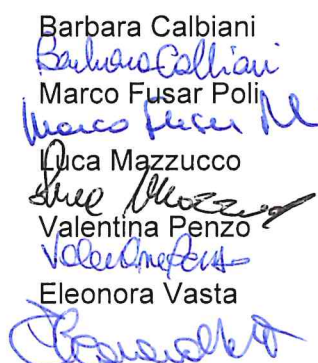 Barbara Calbiani
Barbara Calbiani
Marco Fusar Poli
Marco Fusar Poli
Luca Mazzucco
Luca Mazzucco
Valentina Penzo
Valentina Penzo
Eleonora Vasta